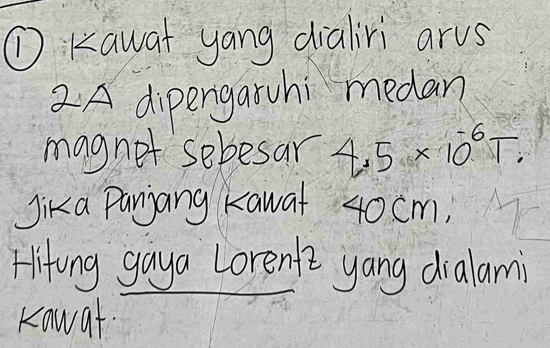 ① Kawat yang dialiri arus
2A dipengaruhi medan
magnet sebesar 4,5 × 10⁻⁶ T.
Jika Panjang Kawat 40 cm,
Hitung gaya Lorentz yang dialami
Kawat.